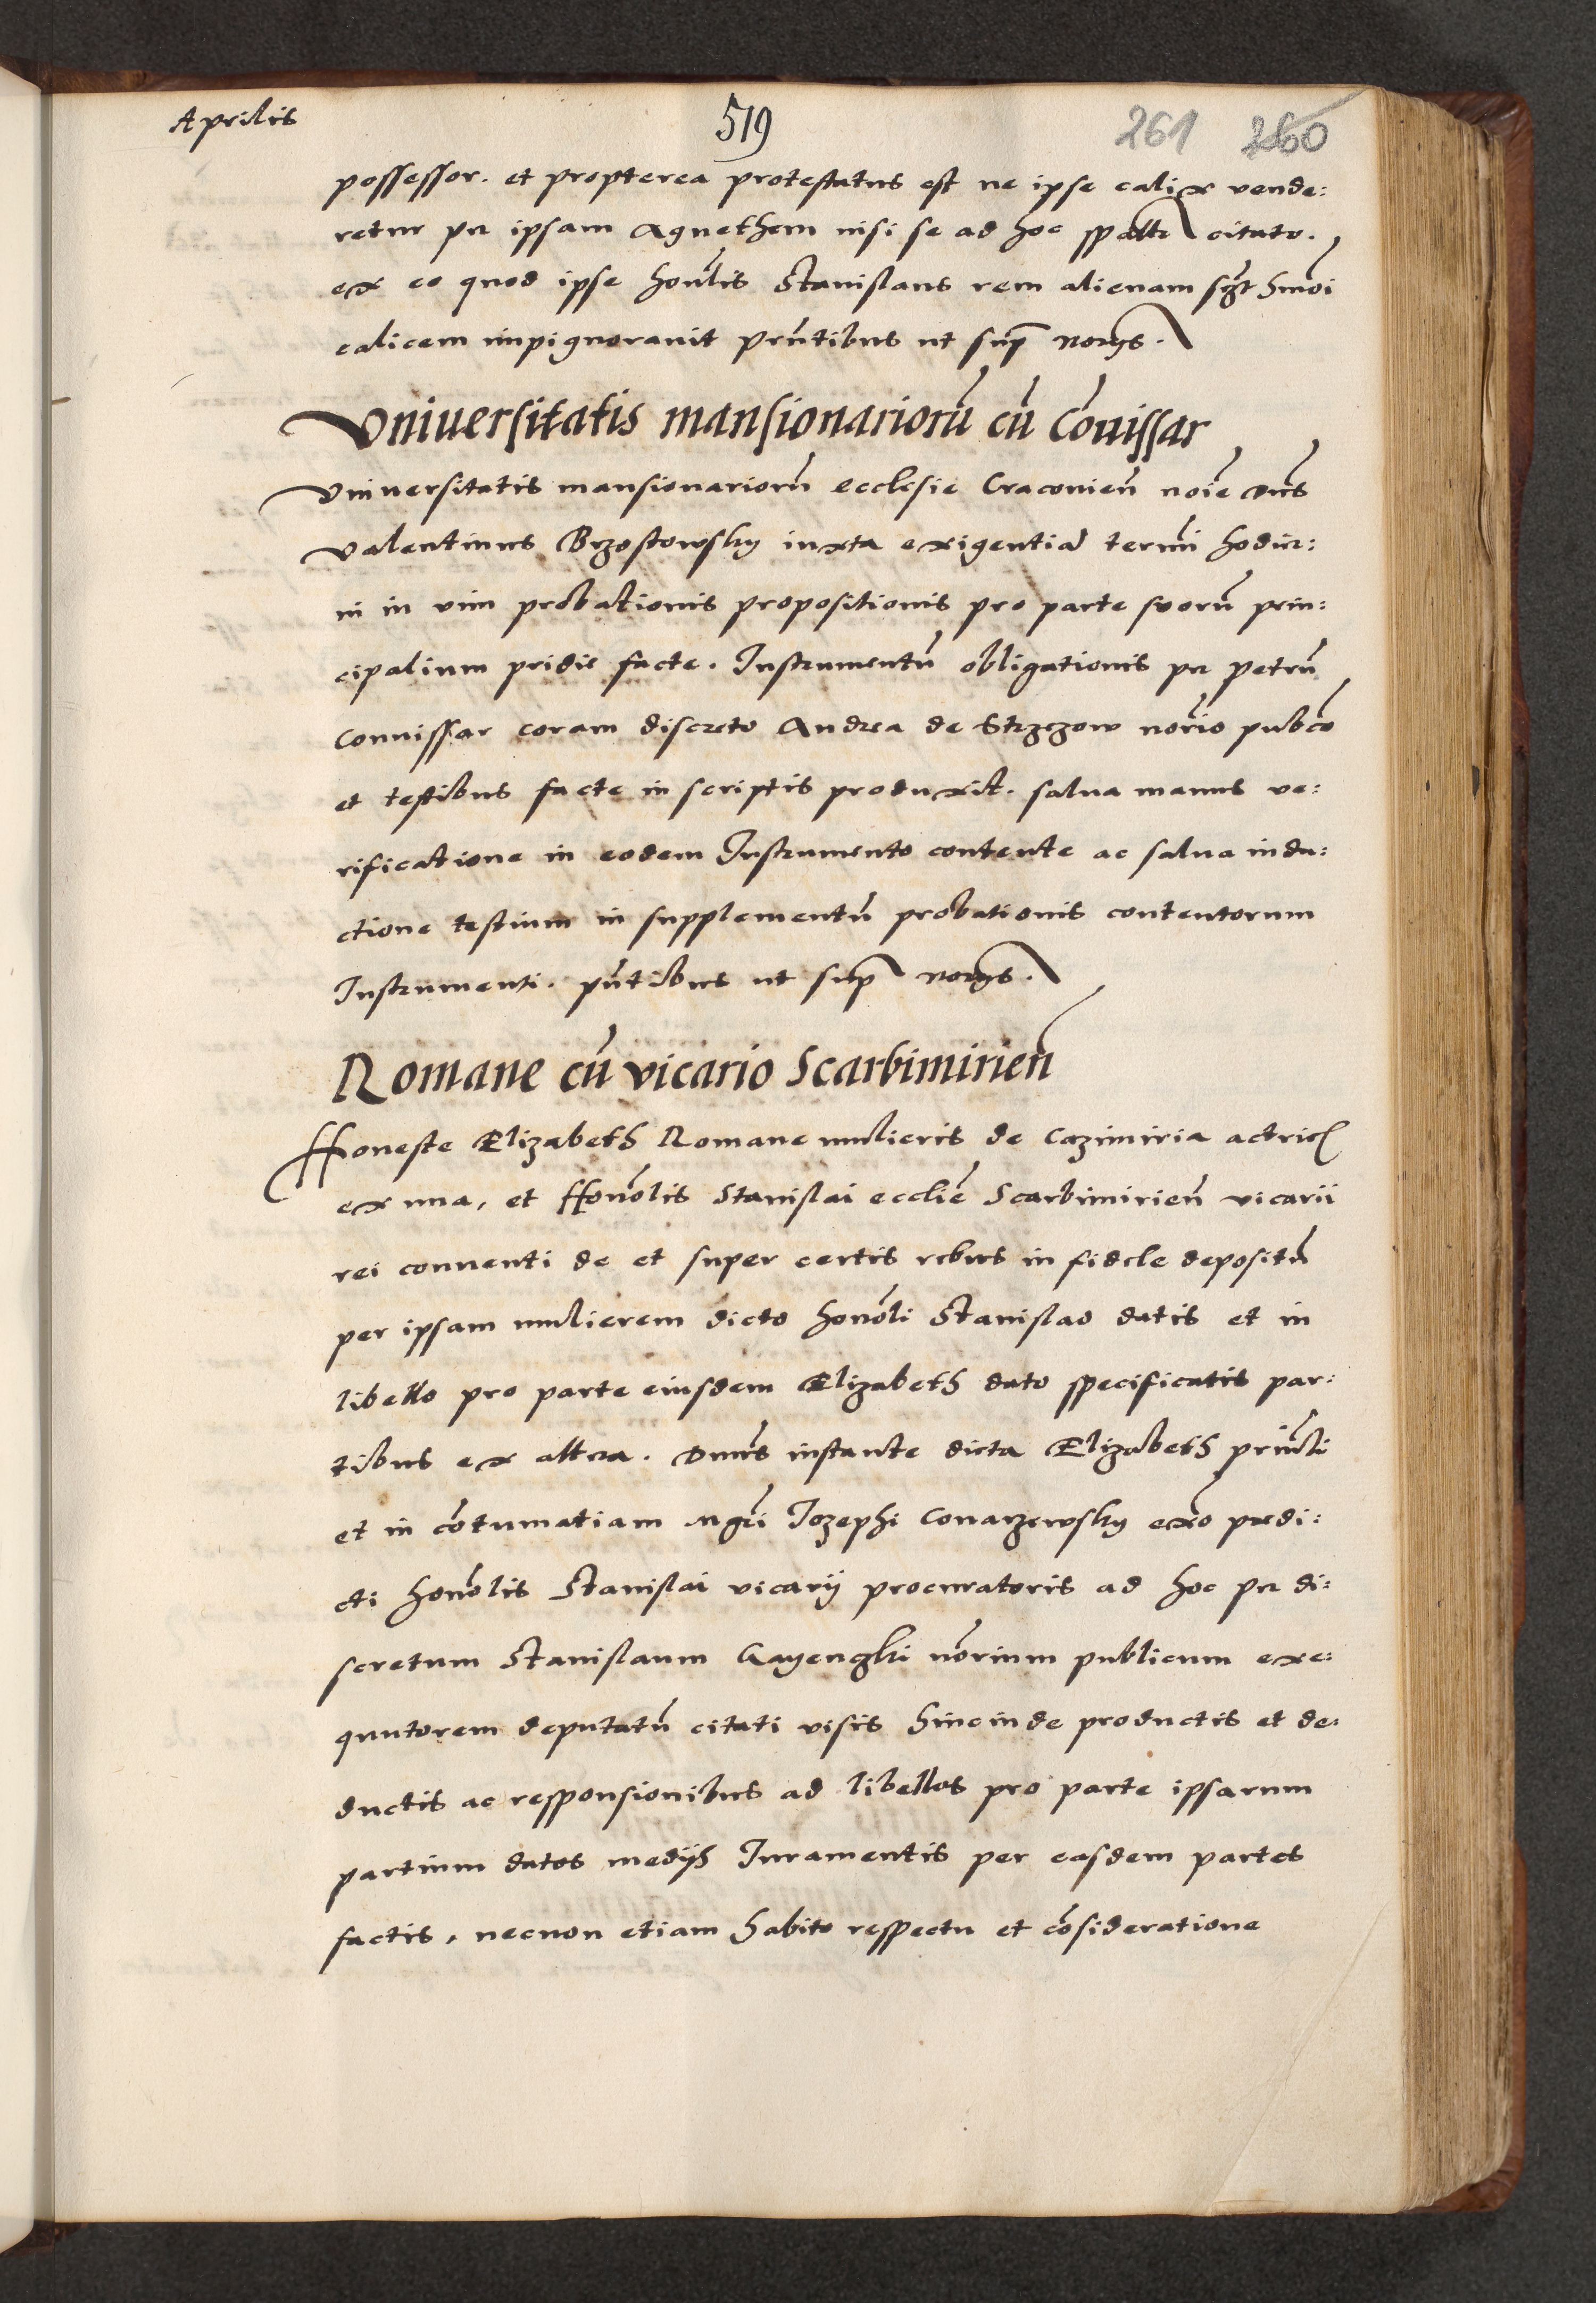 Aprilis
519
261 260
possessor. et propterea protestatus est ne ipse calix vende:
retur per ipsam Agnethem nisi se ad hoc citato.
ex eo quod ipse honlis Stanislaus rem alienam sgt hmoi
calicem impignoravit pntibus ut sup norijs.
Vniuersitatis mansionariorū cū Cōuissar
Vniuersitatis mansionariorū ecclesie Craconien̄ noīe Dn̄s
Valentinus Brzostowsky iuxta exigentiā termī hodier:
ni in vim probationis propositionis pro parte suorū prin:
cipalium pridie facte. Instrumentū obligationis per Petrū
Conuissar coram discreto Andrea de Strzezow norīo pubco
et testibus facte in scriptis produxit. salua manus ve:
rificatione in eodem Instrumento contente ac salua indu:
ctione testium in supplementū probationis contentorum
Instrumenti. pn̄tibus ut sup norijs.
Romane cū vicario Scarbimirien̄
Honeste Elizabeth Romane mulieris de Cazimiria actric
ex una, et Honōlis Stanislai ecclīe Scarbimirien̄ vicarii
rei conuenti de et super certis rebus in fidele depositū
per ipsam mulierem dicto honōli Stanislao datis et in
libello pro parte eiusdem Elizabeth dato specificatis par:
tibus ex altera. Dnūs instante dicta Elizabeth prin̄li
et in cōtumatiam Mgrī Iozephi Conarzewsky exo predi:
cti honōlis Stanislai vicarij procuratoris ad hoc per di:
scretum Stanislaum Gayenghi nōrium publicum exe:
quutorem deputatū citati visis hincinde productis et de:
ductis ac responsionibus ad libellos pro parte ipsarum
partium datos medijs Iuramentis per easdem partes
factis, necnon etiam habito respectu et cōsideratione